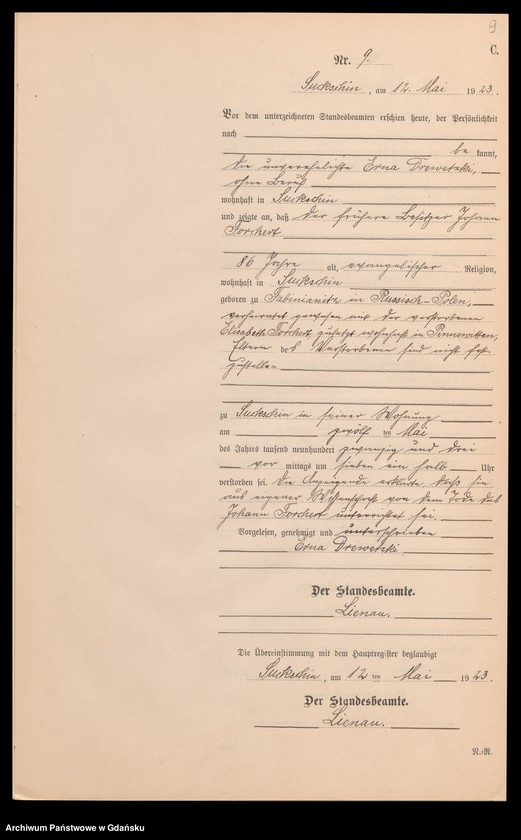 9
C.
Nr. 9.
Suckschin, am 12. Mai 1923.
Vor dem unterzeichneten Standesbeamten erschien heute, der Persönlichkeit
nach
be kannt,
die unverehelichte Erna Drewetzki,
ohne Beruf
wohnhaft in Suckschin
und zeigte an, daß der frühere Besitzer Johann
Forchert
86 Jahre alt, evangelischer Religion,
wohnhaft in Suckschin
geboren zu in Russisch-Polen,
verheiratet gewesen mit der verstorbenen
Elisabeth Forchert zuletzt wohnhaft in
Eltern des Verstorbenen sind nicht fest-
zustellen
zu Suckschin in seiner Wohnung
am zwölf ten Mai
des Jahres tausend neunhundert zwanzig und drei
vor mittags um sieben ein halb Uhr
verstorben sei. Die Anzeigende erklärte, daß sie
aus eigener Wissenschaft von dem Tode des
Johann Forchert unterrichtet sei.
Vorgelesen, genehmigt und unterschrieben
Erna Drewetzki.
Der Standesbeamte.
Lienau.
Die Übereinstimmung mit dem Hauptregister beglaubigt
Suckschin, am 12 ten Mai 1923.
Der Standesbeamte.
Lienau.
N.-R.
Archiwum Państwowe w Gdańsku